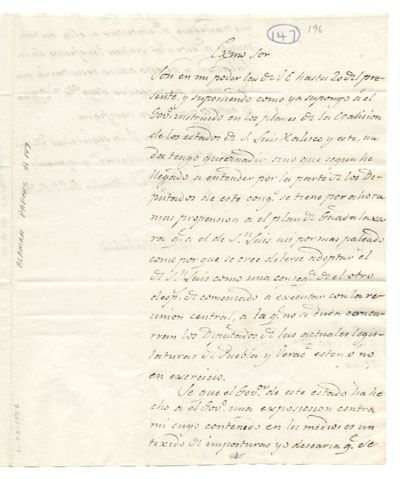 147
196
Exmo Sor
Son en mi poder las de V.E. hasta 20 del pre
sente, y suponiendo como ya supongo a el
Gov.º instruido en los planes de la Coalicion
de los estados de S. Luis Xalisco y este, na
da tengo que añadir sino que segun he
llegado a entender por la parte de los Di
putados de este cong.º se tiene por ahora
mas propension a el plan de Guadalaxa
ra q.e a el de S.n Luis asi por mas paleado
como por que se cree deberse adoptar el
de S.n Luis como una conseq.a de el otro
desp.s de comensado a executar con la re
union central, a la q.e no se duda concur
rran los Diputados de las actuales legis
laturas de Puebla y Verac.z esten o no
en exercicio.
Se que el Gov.r de este estado ha he
cho a el Gov.º una exposision contra
mi cuyo contenido en los medios es un
texido de imposturas yo desearia q.e se
ALAMAN PAPERS # 147